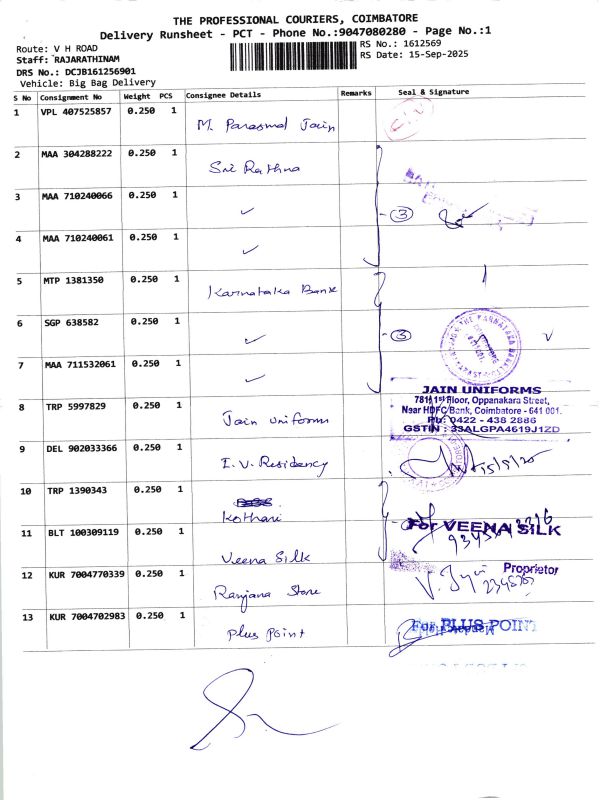 THE PROFESSIONAL COURIERS, COIMBATORE
Delivery Runsheet - PCT - Phone No.:9047080280 - Page No.:1
Route: V H ROAD
RS No.: 1612569
Staff: RAJARATHINAM
RS Date: 15-Sep-2025
DRS No.: DCJB161256901
Vehicle: Big Bag Delivery
S No Consignment No Weight PCS Consignee Details Remarks Seal & Signature
1 VPL 407525857 0.250 1 M. Parasmal Jain
2 MAA 304288222 0.250 1 Sri Rathna
3 MAA 710240066 0.250 1 ✓ 3
4 MAA 710240061 0.250 1 ✓
5 MTP 1381350 0.250 1 Karnataka Bank
6 SGP 638582 0.250 1 ✓ 3
7 MAA 711532061 0.250 1 ✓
JAIN UNIFORMS
1st Floor, Oppanakara Street,
Near HDFC Bank, Coimbatore - 641 001.
Ph: 0422 - 438 2886
GSTIN : 33ALGPA4619J1ZD
8 TRP 5997829 0.250 1 Jain Uniforms
9 DEL 902033366 0.250 1 I.V. Residency
10 TRP 1390343 0.250 1 Kothari
For VEENA SILK
11 BLT 100309119 0.250 1 Veena Silk
Proprietor
12 KUR 7004770339 0.250 1 Ranjana Store
13 KUR 7004702983 0.250 1 Plus Point
For PLUS POINT